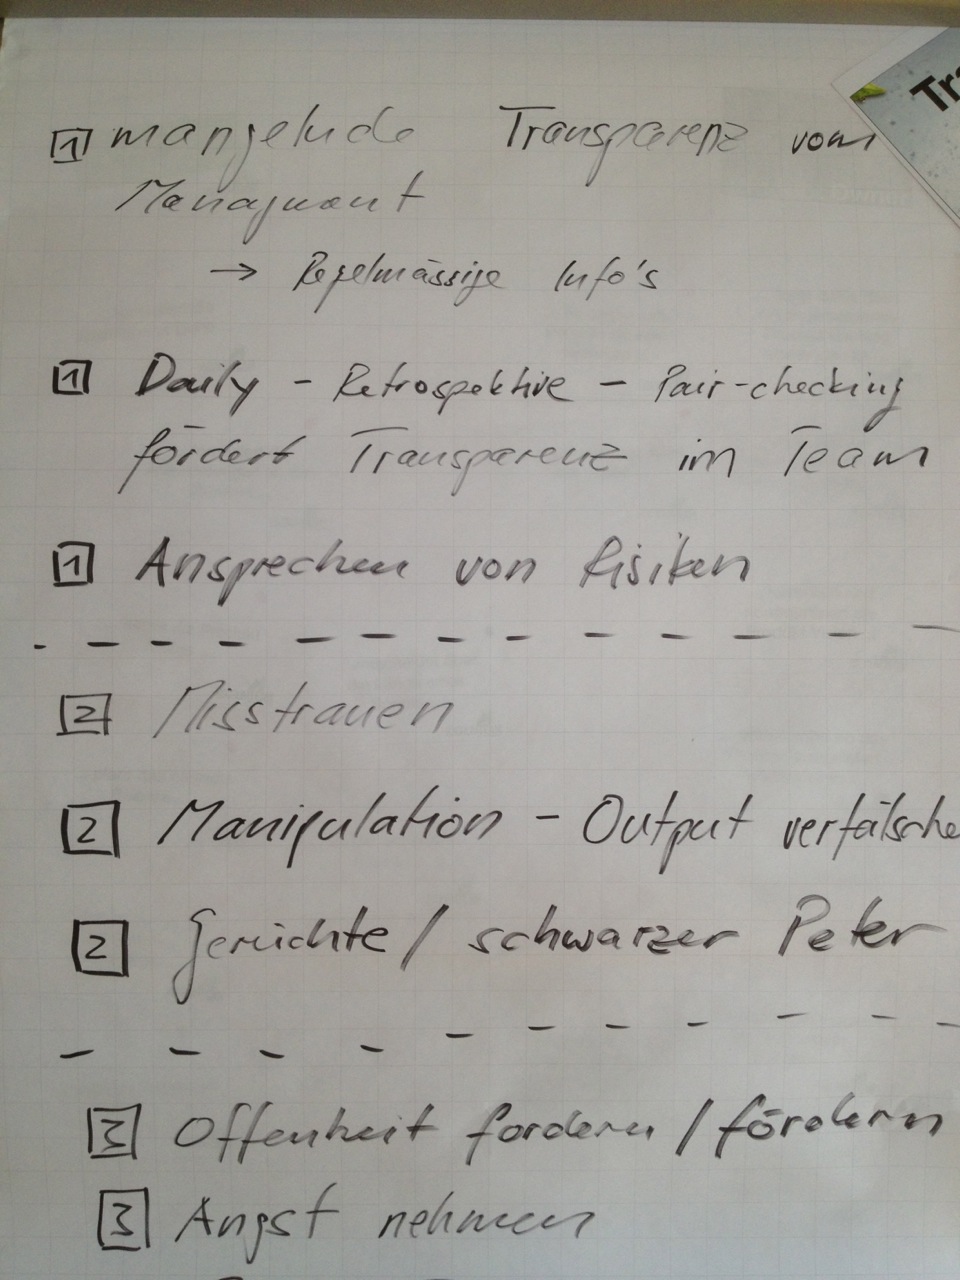 Tra
1 mangelnde Transparenz vom
Managment
→ Regelmässige Info's
1 Daily - Retrospektive - Pair-checking
fördert Transparenz im Team
1 Ansprechen von Risiken
2 Misstrauen
2 Manipulation - Output verfälsche
2 Gerüchte / schwarzer Peter
3 Offenheit fordern / fördern
3 Angst nehmen